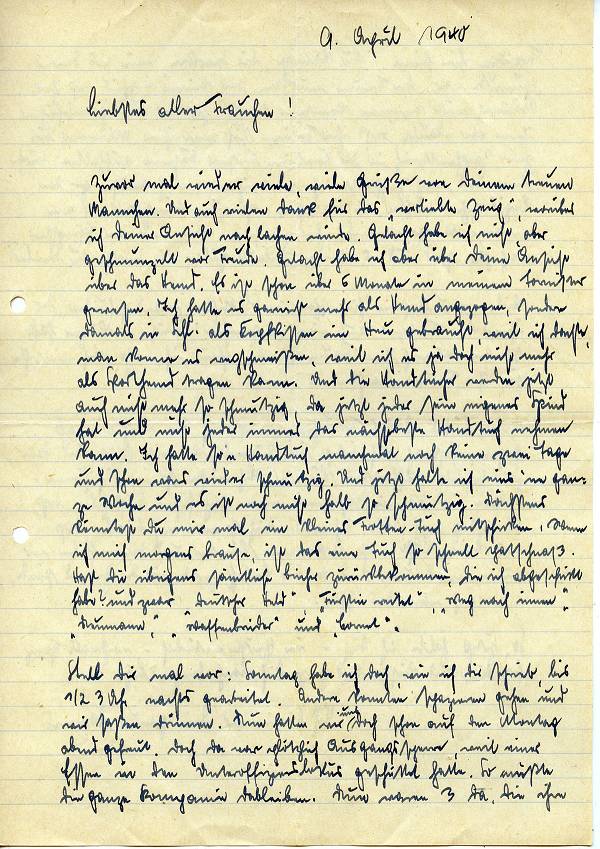 9. April 1940
Liebstes aller Frauchen!
Zuvor mal wieder viele, viele Grüße von Deinem treuen
Mannchen. Und auch vielen Dank für das „verliebte Zeug“, worüber
ich Deiner Ansicht nach lachen würde. Gelacht habe ich nicht, aber
geschmunzelt vor Freude. Gelacht habe ich aber über Deine Ansicht
über das Hemd. Es ist schon über 6 Monate in meinem Tornister
gewesen. Ich hatte es garnicht mehr als Hemd angezogen, sondern
damals in als Kopfkissen im Heu gebraucht, weil ich dachte,
man könne es wegschmeißen, weil ich es ja doch nicht mehr
als Sporthemd tragen kann. Und die Handtücher werden jetzt
auch nicht mehr so schmutzig, da jetzt jeder sein eigenes Spind
hat und nicht jeder immer das nächstbeste Handtuch nehmen
kann. Ich hatte so'n Handtuch manchmal noch keine zwei Tage
und schon wars wieder schmutzig. Und jetzt hatte ich eins 'ne gan-
ze Woche und es ist noch nicht halb so schmutzig. Nächstens
könntest Du mir mal ein kleines Frottier-Tuch mitschicken. Wenn
ich mich morgens brause, ist das eine Tuch so schnell patschnaß.
Hast Du übrigens sämtliche Bücher zurückbekommen, die ich abgeschickt
habe? und zwar „Deutscher Held“, „Fürstin reitet“, „Weg nach innen“
„Neumann“, „Waffenbrüder“ und „Cornet“.
Stell Dir mal vor: Sonntag habe ich doch, wie ich Dir schrieb, bis
1/2 3 Uhr nachts gearbeitet. Andere konnten spazieren gehen und
wir saßen drinnen. Nun hatten wir uns doch schon auf den Montag
abend gefreut. Doch da war plötzlich Ausgangssperre, weil einer
Essen in den Unteroffizierslokus geschüttet hatte. So mußte
die ganze Kompanie dableiben. Nun waren 3 da, die ihre